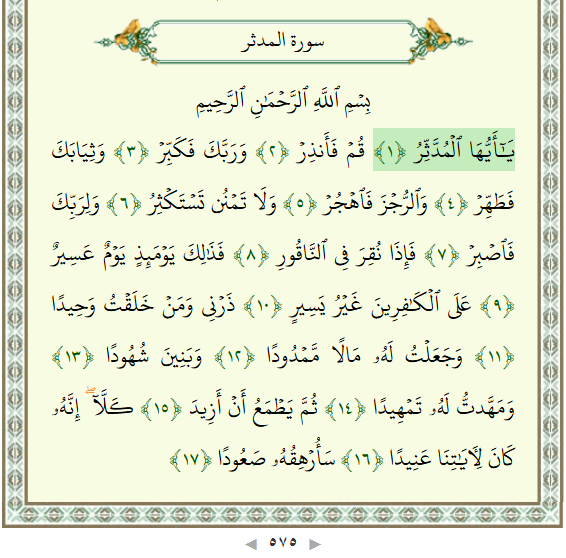 سورة المدثر
بِسْمِ ٱللَّهِ ٱلرَّحْمَٰنِ ٱلرَّحِيمِ
يَـٰٓأَيُّهَا ٱلْمُدَّثِّرُ ﴿١﴾ قُمْ فَأَنذِرْ ﴿٢﴾ وَرَبَّكَ فَكَبِّرْ ﴿٣﴾ وَثِيَابَكَ
فَطَهِّرْ ﴿٤﴾ وَٱلرُّجْزَ فَٱهْجُرْ ﴿٥﴾ وَلَا تَمْنُن تَسْتَكْثِرُ ﴿٦﴾ وَلِرَبِّكَ
فَٱصْبِرْ ﴿٧﴾ فَإِذَا نُقِرَ فِى ٱلنَّاقُورِ ﴿٨﴾ فَذَٰلِكَ يَوْمَئِذٍ يَوْمٌ عَسِيرٌ
﴿٩﴾ عَلَى ٱلْكَـٰفِرِينَ غَيْرُ يَسِيرٍ ﴿١٠﴾ ذَرْنِى وَمَنْ خَلَقْتُ وَحِيدًا
﴿١١﴾ وَجَعَلْتُ لَهُۥ مَالًا مَّمْدُودًا ﴿١٢﴾ وَبَنِينَ شُهُودًا ﴿١٣﴾
وَمَهَّدتُّ لَهُۥ تَمْهِيدًا ﴿١٤﴾ ثُمَّ يَطْمَعُ أَنْ أَزِيدَ ﴿١٥﴾ كَلَّآ ۖ إِنَّهُۥ
كَانَ لِـَٔايَـٰتِنَا عَنِيدًا ﴿١٦﴾ سَأُرْهِقُهُۥ صَعُودًا ﴿١٧﴾
٥٧٥